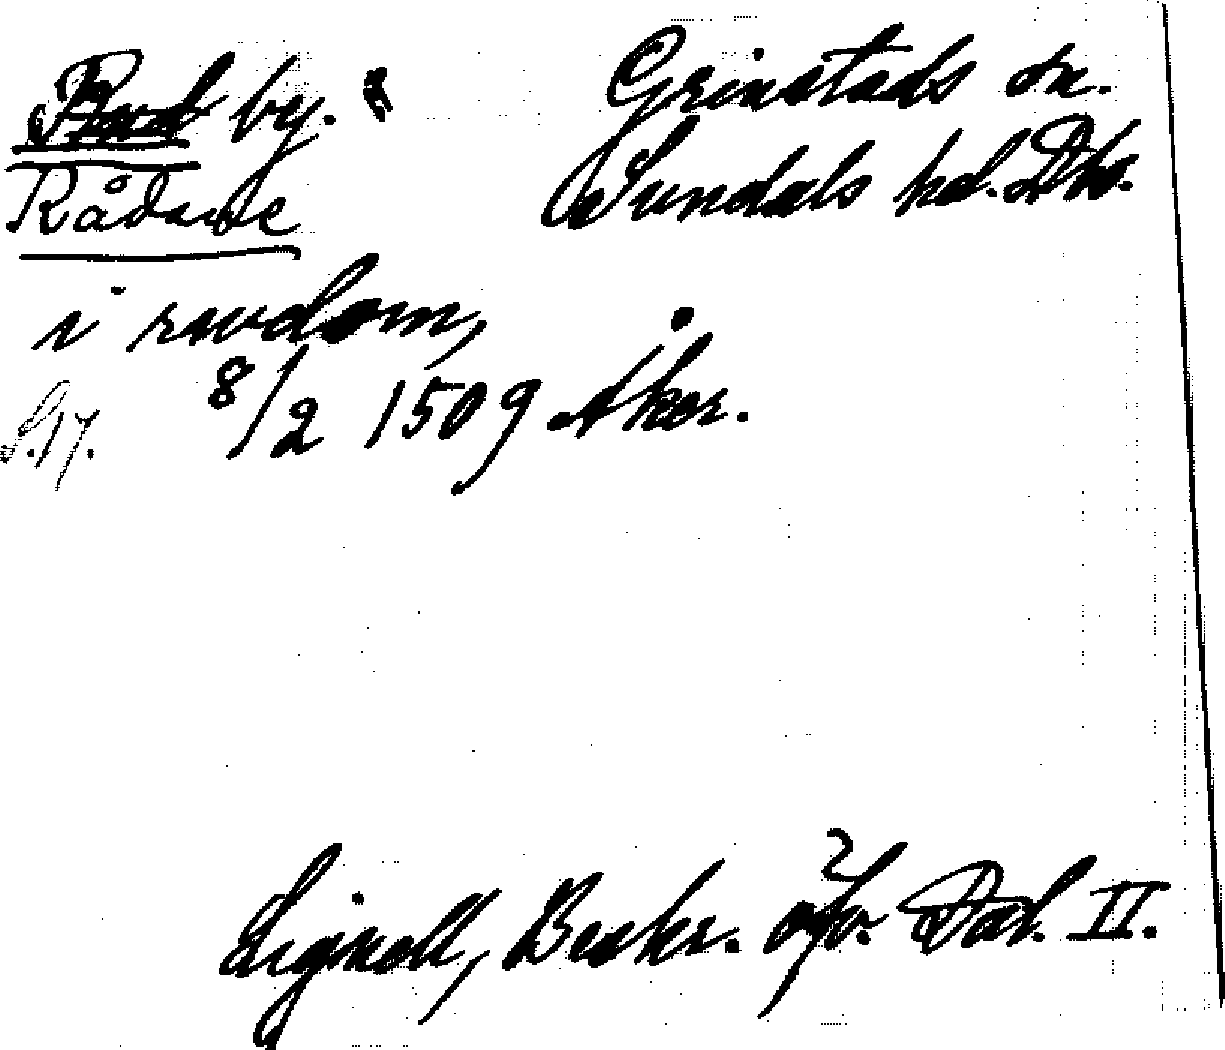 Rud by.
Grinstads sn.
Rådane
Sundals hd. Dls.
i rwdom,
8/2 1509 Åker.
S. 17.
Lignell, Beskr. öfv. Dal. II.